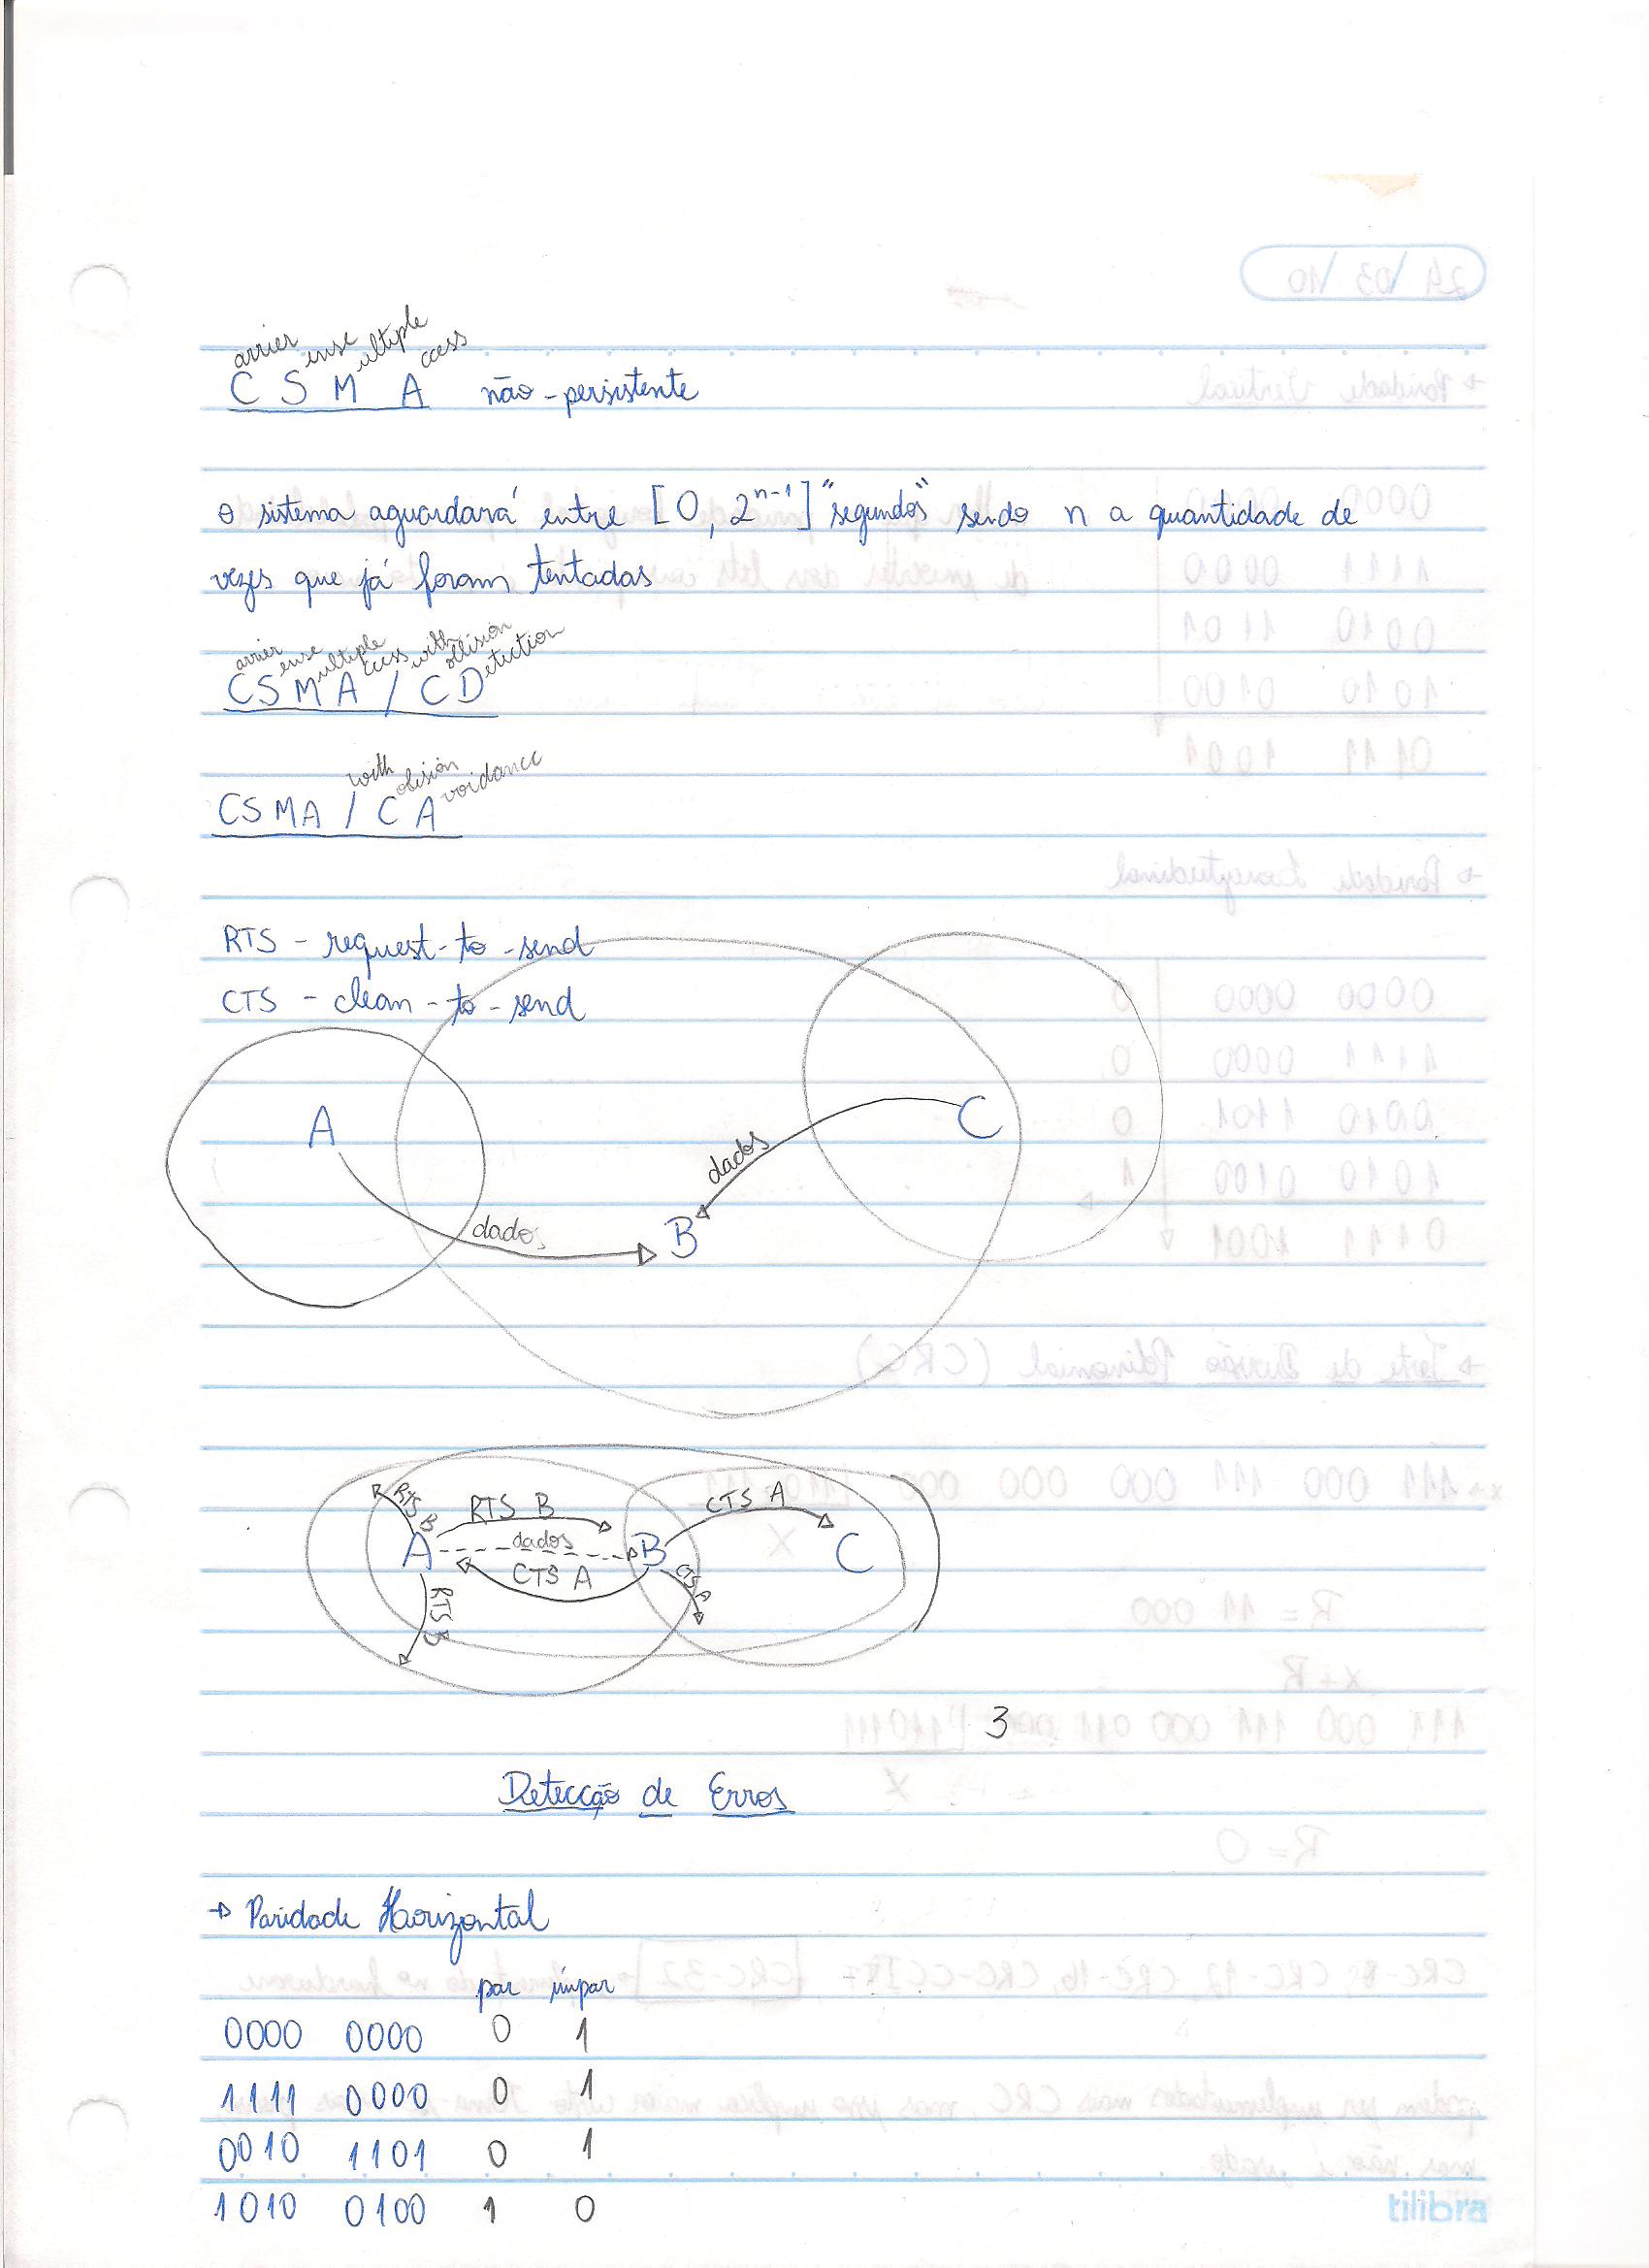 arrier ense ultiple ccess
C S M A não-persistente
o sistema aguardará entre [0, 2^n-1] "segundos" sendo n a quantidade de
vezes que já foram tentadas
arrier ense ultiple ccess with ollision etection
CSMA / CD
with olisión voidance
CSMA / CA
RTS - request-to-send
CTS - clean-to-send
A
C
dados
dados
B
RTS B
RTS B
CTS A
A
dados
B
C
CTS A
CTS A
RTS B
3
Detecção de Erros
→ Paridade Horizontal
par ímpar
0000 0000 0 1
1111 0000 0 1
0010 1101 0 1
1010 0100 1 0
tilibra